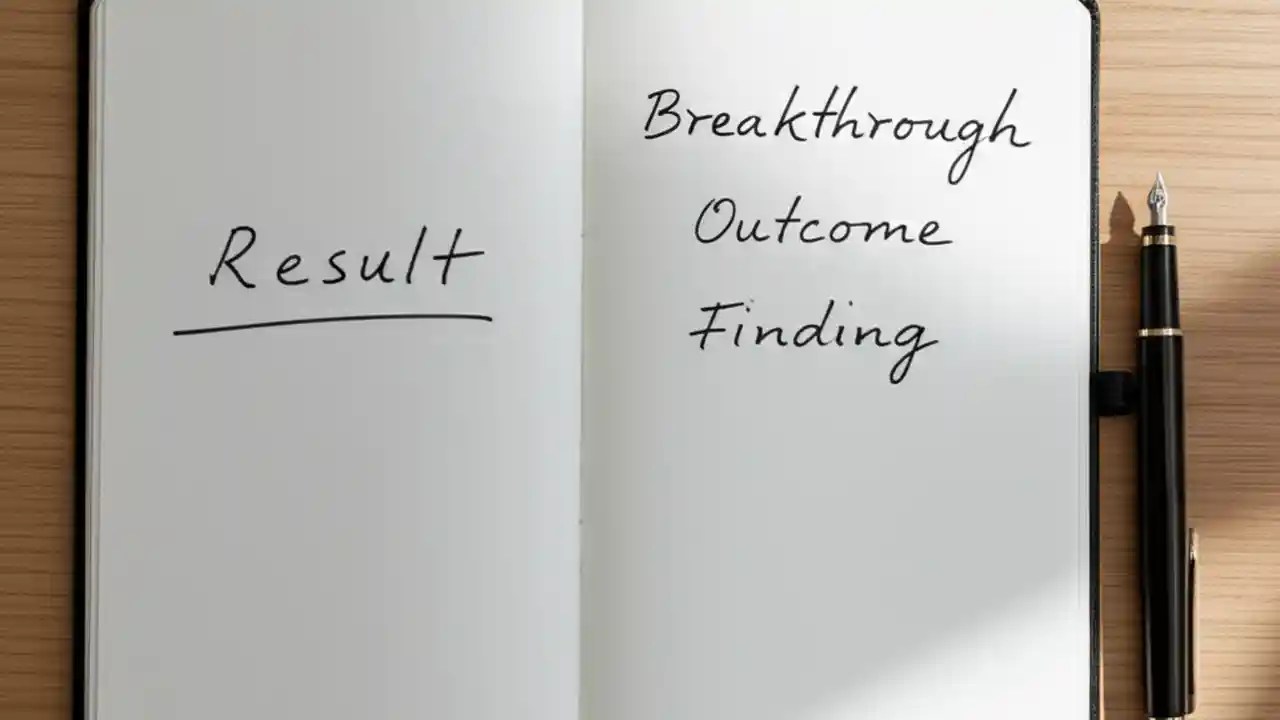 Result
Breakthrough
Outcome
Finding